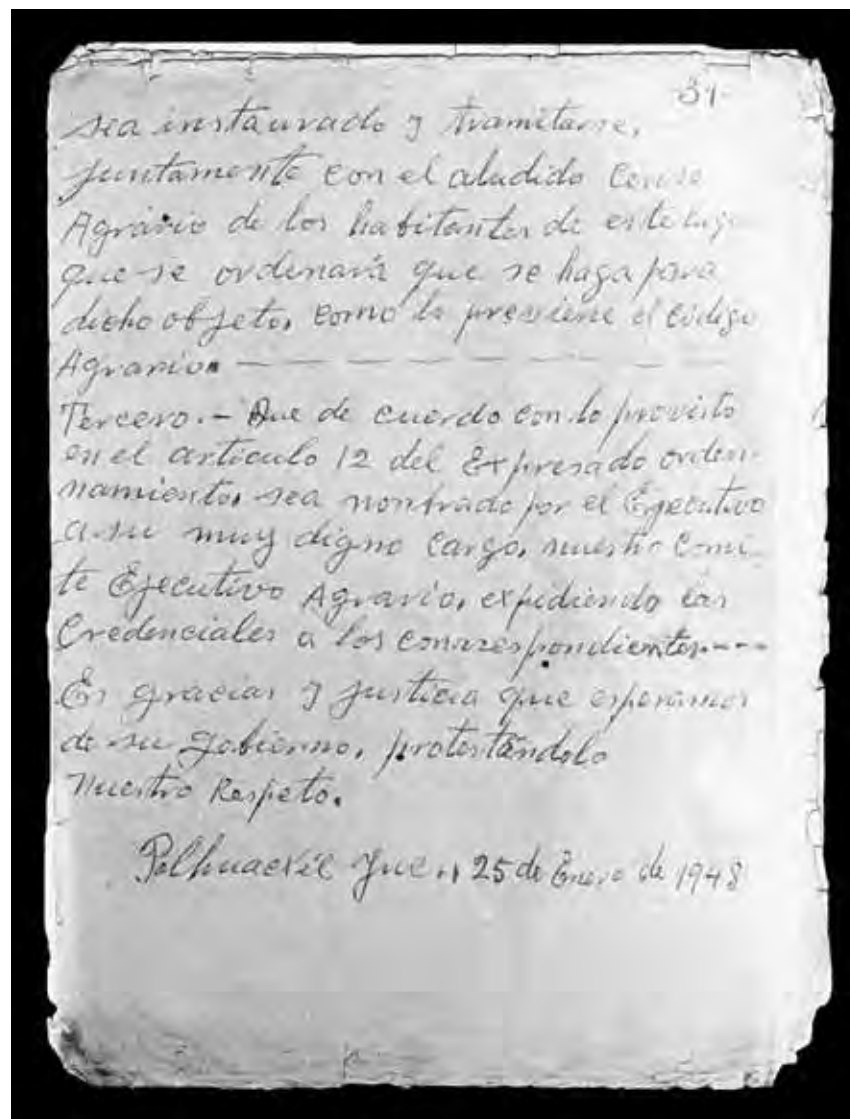 -31-
sea instaurado y tramitarse,
juntamente con el aludido Censo
Agrário de los habitantes de este luga
que se ordenará que se haga para
dicho objeto, como lo previene el código
Agrario. — — — — — — — —
Tercero.- Que de cuerdo con lo previsto
en el artículo 12 del Expresado orden-
namiento, sea nombrado por el Ejecutivo
a su muy digno cargo, nuestro Comi-
te Ejecutivo Agrario, expidiendo las
Credenciales a los conrrespondientes.---
Es gracias y justicia que esperamos
de su Gobierno, protestándolo
Nuestro Respeto.
Yuc., 25 de Enero de 1948